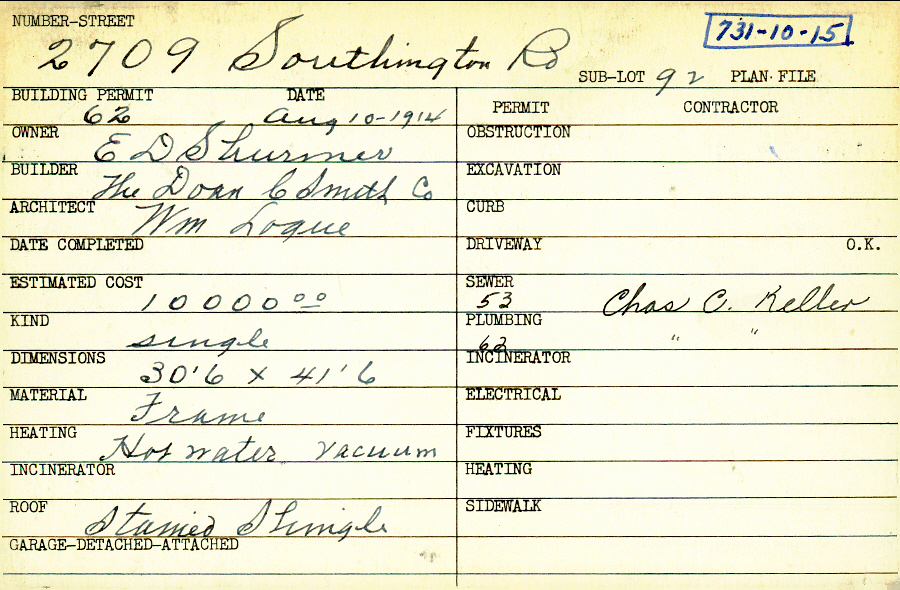 NUMBER-STREET
731-10-15
2709 Southington Rd
SUB-LOT 92 PLAN FILE
BUILDING PERMIT DATE
62 Aug 10-1914
OWNER
E D Shurmer
BUILDER
The Doan C Smith Co
ARCHITECT
Wm Logue
DATE COMPLETED
ESTIMATED COST
10000 00
KIND
single
DIMENSIONS
30'6 x 41'6
MATERIAL
Frame
HEATING
Hot water vacuum
INCINERATOR
ROOF
Stained Shingle
GARAGE-DETACHED-ATTACHED
PERMIT CONTRACTOR
OBSTRUCTION
EXCAVATION
CURB
DRIVEWAY O.K.
SEWER
53 Chas C. Keller
PLUMBING
62 " "
INCINERATOR
ELECTRICAL
FIXTURES
HEATING
SIDEWALK